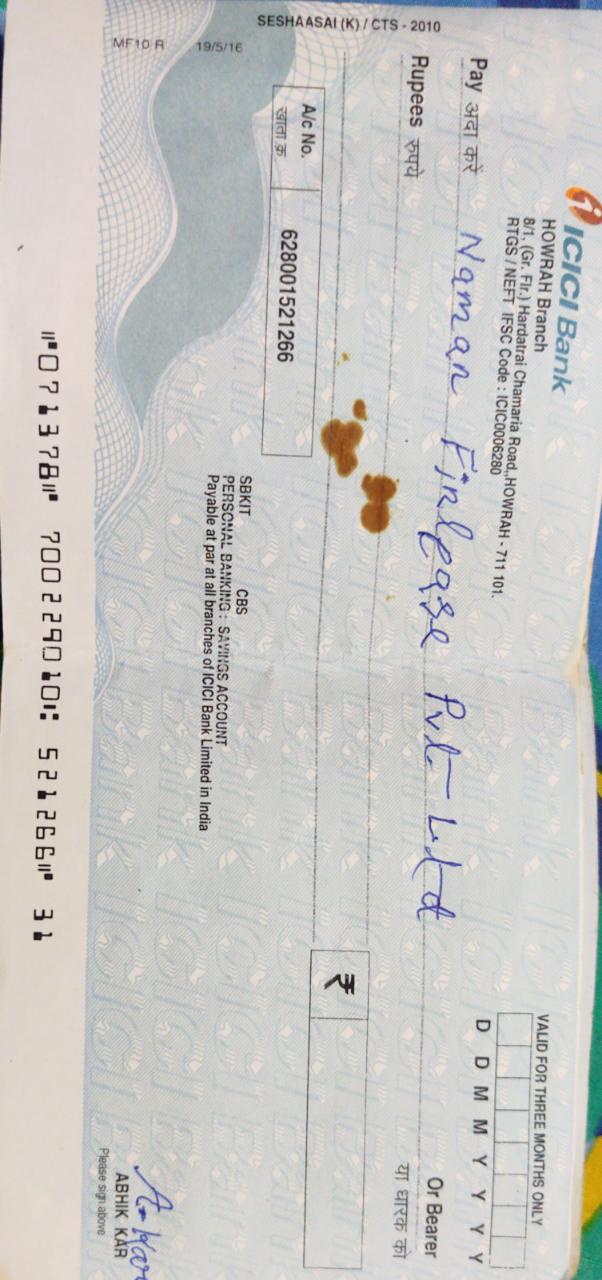 ICICI Bank
HOWRAH Branch
8/1, (Gr. Flr.) Hardatrai Chamaria Road,,HOWRAH - 711 101.
RTGS / NEFT IFSC Code : ICIC0006280
VALID FOR THREE MONTHS ONLY
D D M M Y Y Y Y
Pay अदा करें Naman Finlease Pvt Ltd Or Bearer
या धारक को
Rupees रुपये
₹
A/c No. 628001521266
खाता क्र
SBKIT CBS
PERSONAL BANKING : SAVINGS ACCOUNT
Payable at par at all branches of ICICI Bank Limited in India
A. Kar
ABHIK KAR
Please sign above
SESHAASAI (K) / CTS - 2010
MF10 R 19/5/16
⑈071378⑈ 700229010⑆ 521266⑈ 31